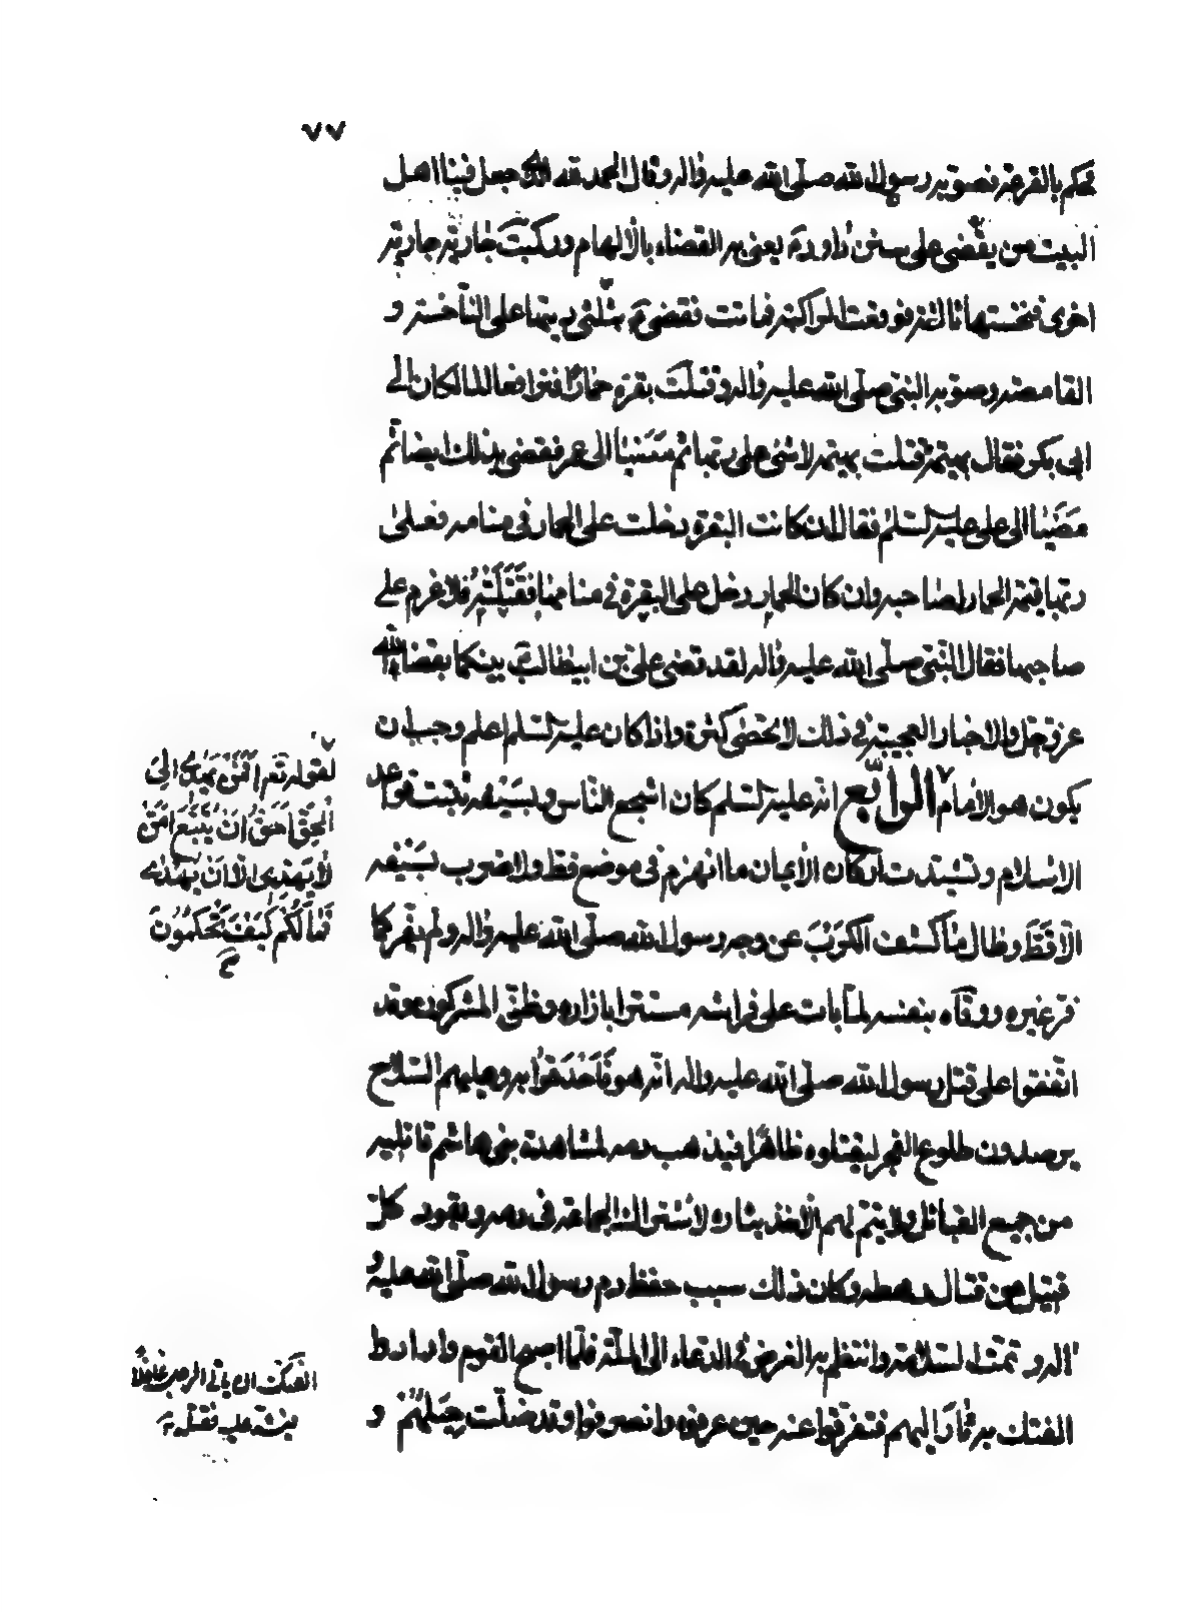 ٧٧
فحكم بالقرعة فصوبه رسول الله صلّى الله عليه وآله وقال الحمد لله الذى جعل فينا اهل
البيت من يقضى على سنن داود ع يعنى به القضاء بالألهام وركبت جارية جارية
اخرى فنخستها ثالثة فوقعت الراكبة فماتت فقضى ع بثلثى ديتها على الناخسة و
القامصة وصوبه النبى صلّى الله عليه وآله وقتلت بقرة حمارًا فترافعا المالكان الى
ابى بكر فقال بهيمة قتلت بهيمة لا شئ على ربها ثم مَضَيٰا الى عمر فقضى بذلك ايضا ثم
مَضَيٰا الى على عليه السّلام فقال ان كانت البقرة دخلت على الحمار فى منامه فعلىٰ
ربها قيمة الحمار لصاحبه وان كان الحمار دخل على البقرة فى منامها فَقَتَلَتْهُ فلا غرم على
صاحبها فقال النّبى صلّى الله عليه وآله لقد قضى على بن ابيطالب ع بينكما بقضاء الله
عز وجل والاخبار العجيبة فى ذلك لا تحصىٰ كثرة واذا كان عليه السّلام اعلم وجب ان
يكون هو الأمام الرّابع انّه عليه السّلام كان اشجع النّاس وبسَيْفه ثبتت قواعد
الاسلام وتشيّدت اركان الأيمان ما انهزم فى موضع قط ولا ضرب بسَيْفه
الّا قَطَّ وطال ما كشف الكَرْبَ عن وجه رسول الله صلّى الله عليه وآله ولم يفر كما
فر غيره ووقاه بنفسه لمّا بات على فراشه مستترا بازاره وظنّ المشركون وقد
اتّفقوا على قتل رسول الله صلّى الله عليه وآله انّه هو فَاَحْدَقُوا به وعليهم السّلاح
يرصدون طلوع الفجر ليقتلوه ظاهرًا فيذهب دمه لمشاهدة بنى هاشم قاتليه
من جميع القبائل ولا يتم لهم الأخذ بثاره لاشتراك الجماعة فى دمه ويقود كل
قبيل عن قتال رهطه وكان ذلك سبب حفظ دم رسول الله صلّى الله عليه و
آله وتمّت السّلامة وانتظم به الغرض فى الدعاء الى الملّة فلمّا اصبح القوم وارادوا
الفتك به ثٰار اليهم فتفرّقوا عنه حين عرفوه وانصرفوا وقد ضلّت حِيَلهُمْ و
لقوله تعم اَفَمَنْ يَهْدِىٓ الَى
الْحَقِّ اَحَقُّ اَنْ يُتَّبَعَ اَمَّنْ
لٰا يَهِدّىٓ الّٰا اَنْ يُهْدٰى
فَمٰا لَكُمْ كَيْفَ تَحْكُمُونَ
الفتك ان ياتى الرجل غافلًا
فيشد عليه فيقتله